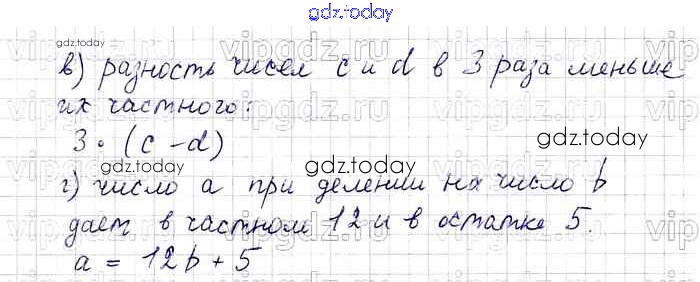 gdz.today
gdz.today
в) разность чисел c и d в 3 раза меньше
их частного:
3 · (c - d)
gdz.today
gdz.today
г) число a при делении на число b
дает в частном 12 и в остатке 5.
a = 12b + 5
gdz.today